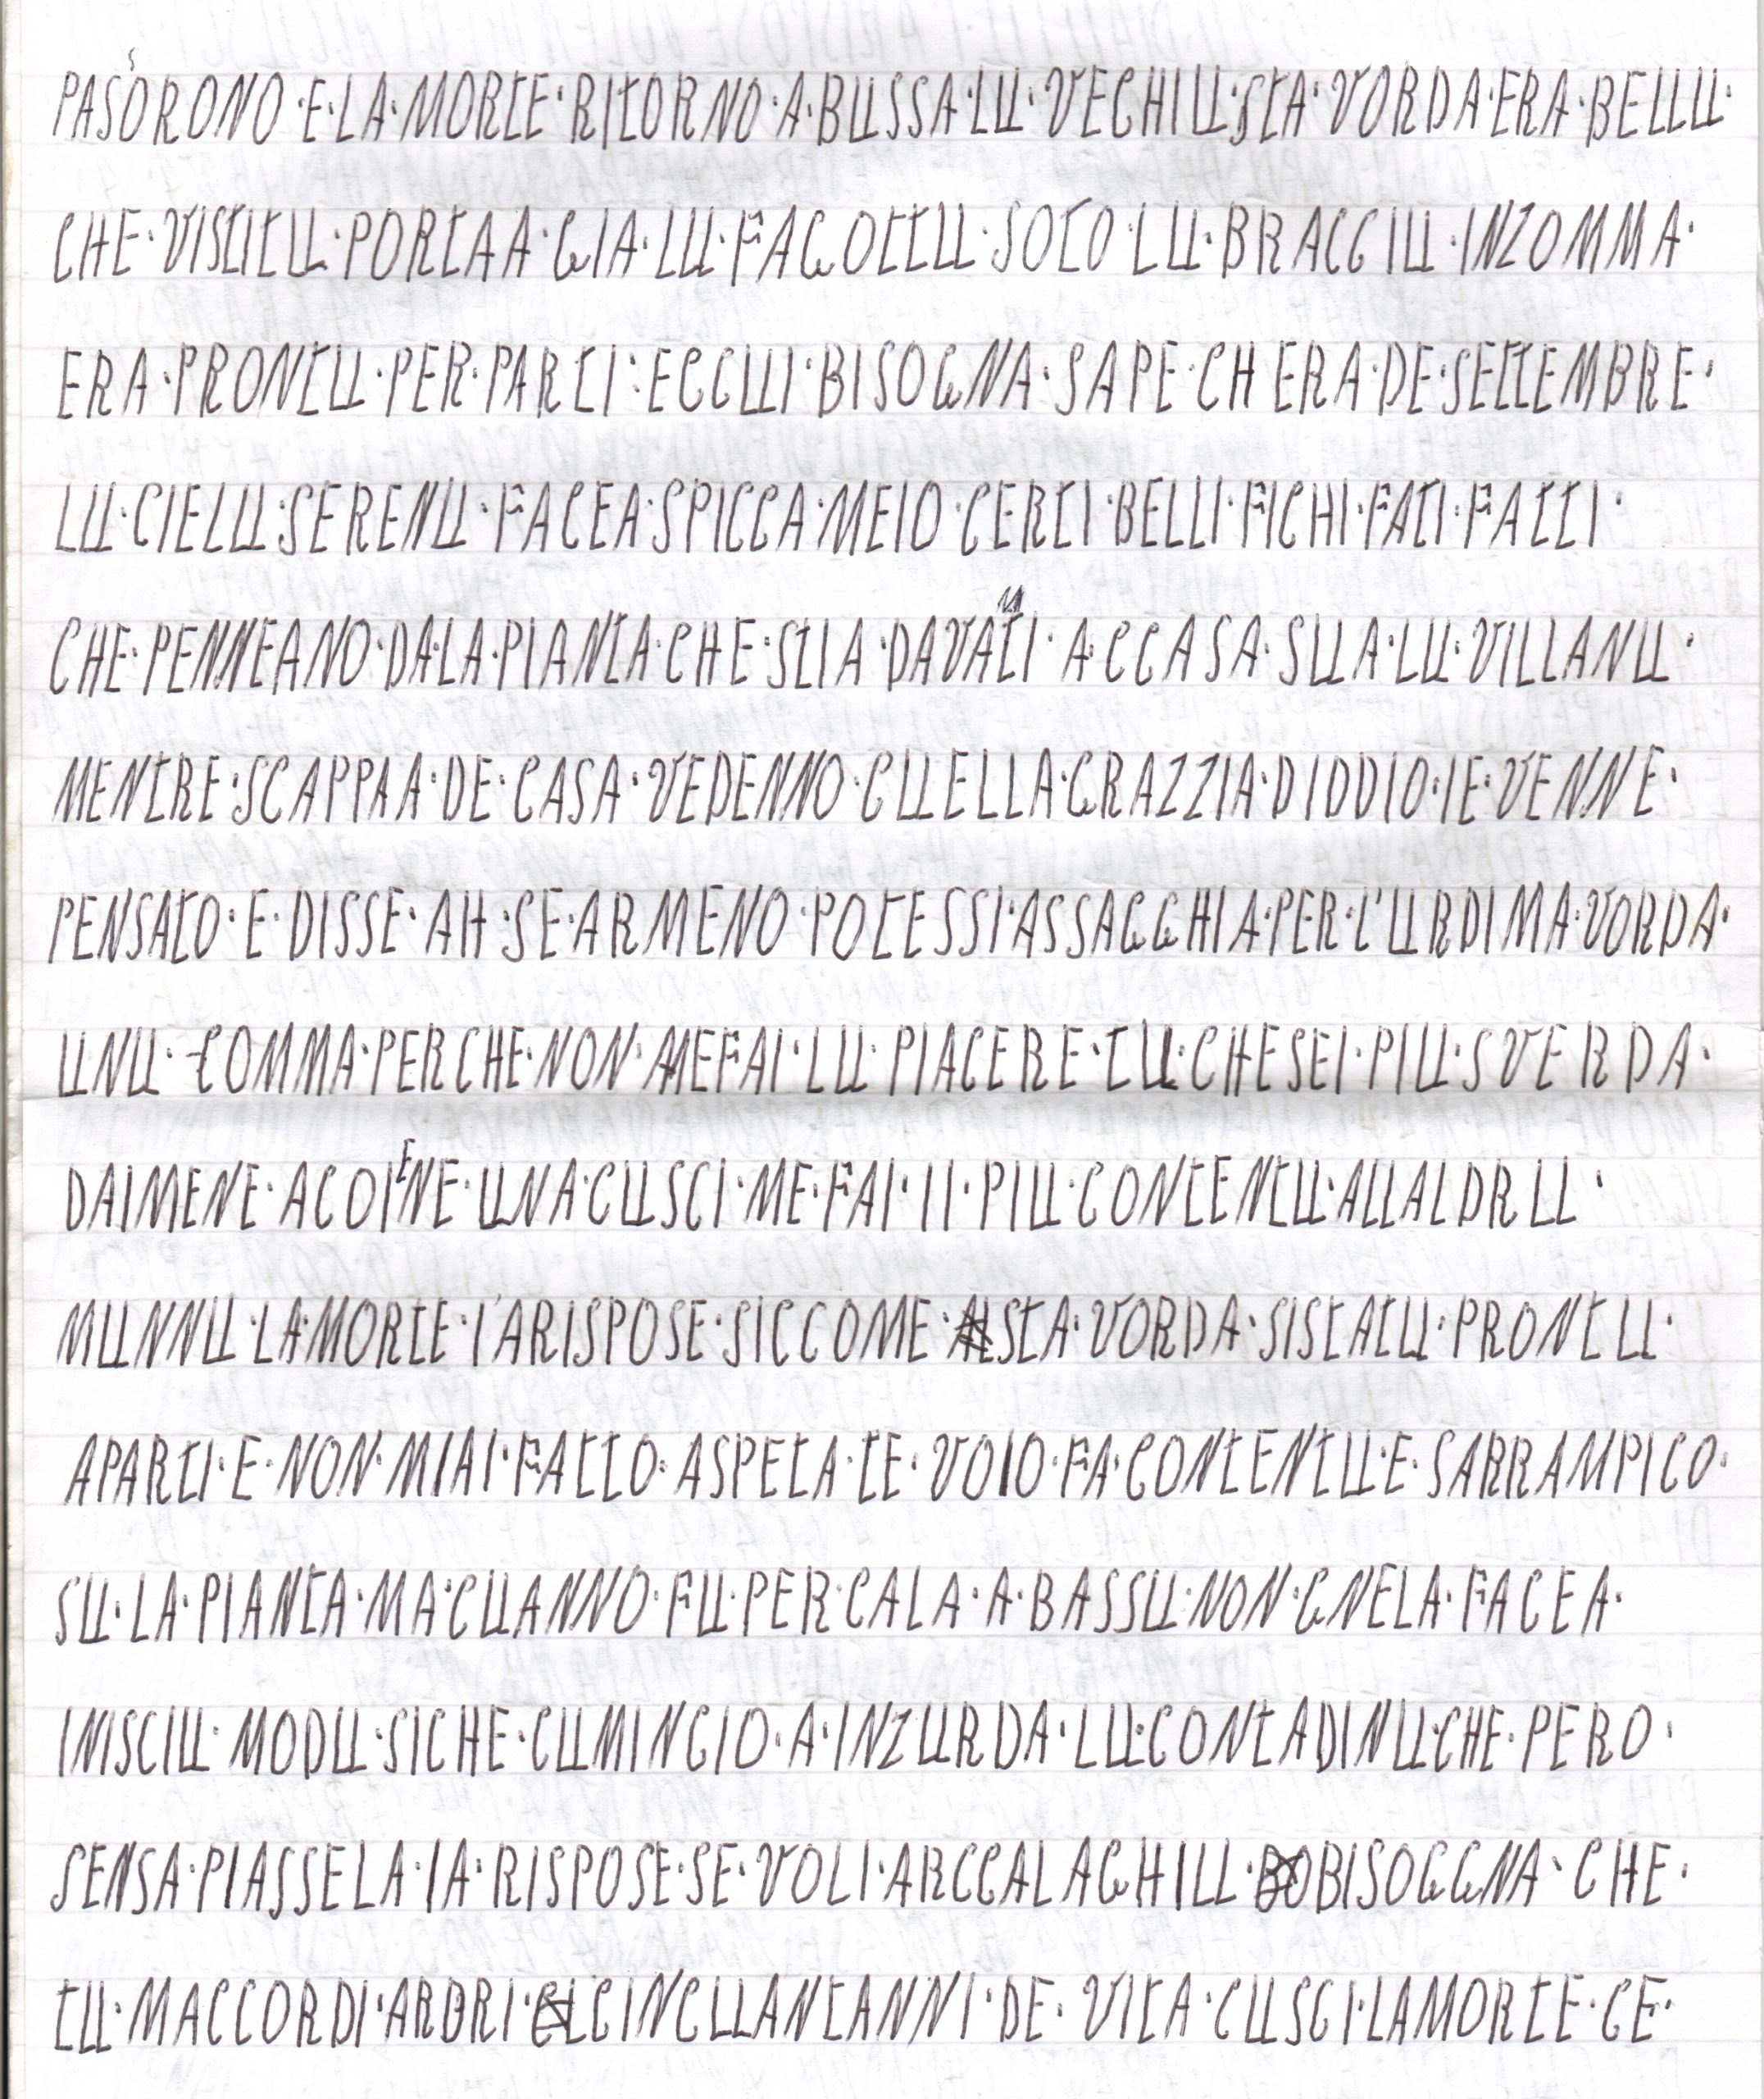 PASORONO·E·LA·MORTE·RITORNO·A·BUSSA·LU·VECHIU·STA·VORDA·ERA·BELLU·
CHE·VISTITU·PORTAA·GIA·LU·FAGOTTU·SOTO·LU·BRACCIU·INZOMMA·
ERA·PRONTU·PER·PARTI:ECCUI·BISOGNA·SAPE·CH ERA·DE·SETTEMBRE·
LU·CIELU·SERENU·FACEA·SPICCA·MEIO·CERTI·BELLI·FICHI·FATI·FATTI·
CHE·PENNEANO·DALA·PIANTA·CHE·STIA·DAVANTI·A·CCASA·SUA·LU·VILLANU·
MENTRE·SCAPPAA·DE·CASA·VEDENNO·CUELLA·GRAZZIA·DIDDIO·IE·VENNE·
PENSATO·E·DISSE·AH·SE·ARMENO·POTESSI·ASSAGGHIA·PER·L'URDIMA·VORDA·
UNU·COMMA·PERCHE·NON·MEFAI·LU·PIACERE·TU·CHESEI·PIU·SVERDA·
DAIMENE·ACOIENE·UNA·CUSCI·ME·FAI·II·PIU·CONTENTU·ALLALDRU·
MUNNU·LA·MORTE·I'ARISPOSE·SICCOME·STA·VORDA·SISTATU·PRONTU·
APARTI·E·NON·MIAI·FATTO·ASPETA·TE·VOIO·FA·CONTENTU·E·SARRAMPICO·
SU·LA·PIANTA·MA·CUANNO·FU·PER·CALA·A·BASSU·NON·GNELA·FACEA·
INISCIU·MODU·SICHE·CUMINCIO·A·INZURDA·LU·CONTADINU·CHE·PERO·
SENSA·PIASSELA·IA·RISPOSE·SE·VOLI·ARCCALAGHIU·BISOGGNA·CHE·
TU·MACCORDI·ARDRI·CINCUANTANNI·DE·VITA·CUSCI·LAMORTE·CE·